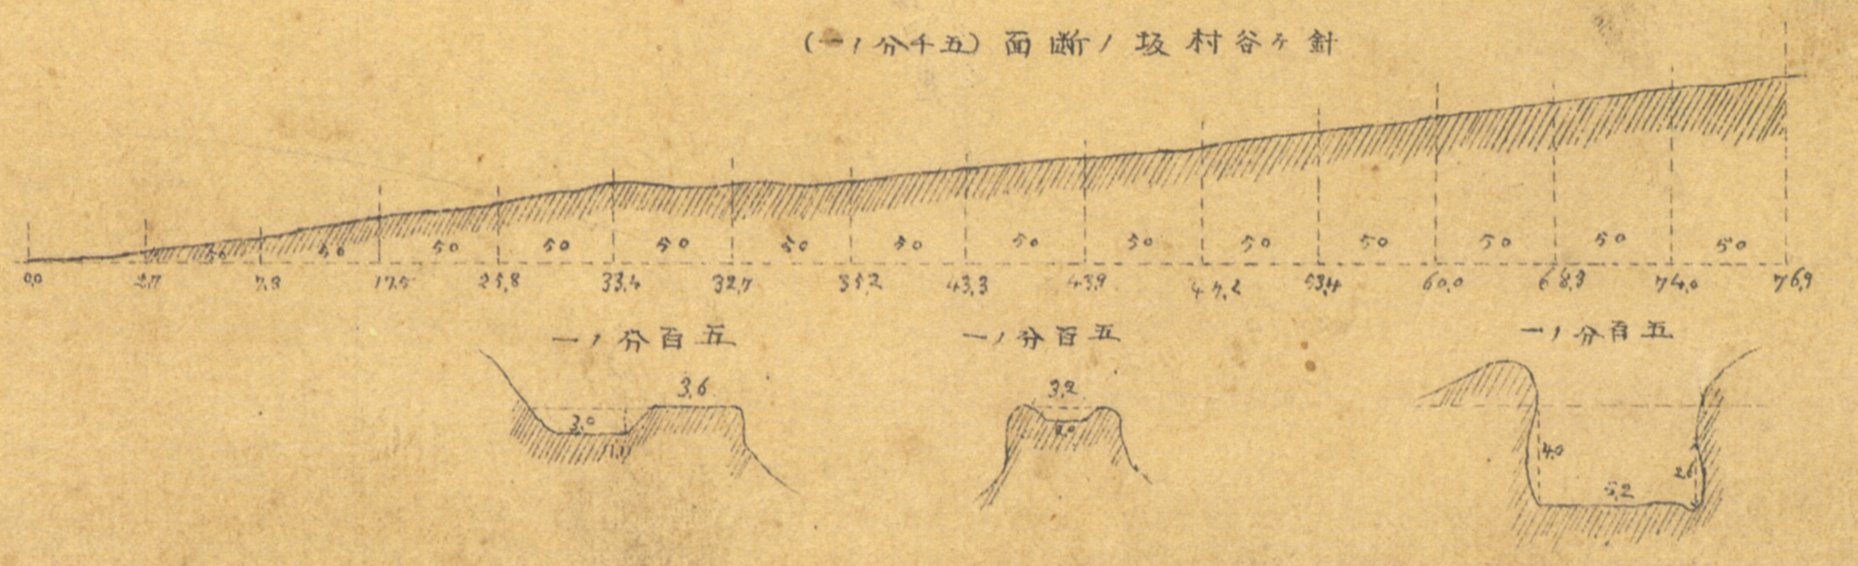 針ヶ谷村坂ノ断面(五千分ノ一)
50 50 50 50 50 50 50 50 50 50 50 50 50
0.0 2.7 7.8 17.5 25.8 33.4 32.7 35.2 43.3 43.9 47.2 53.4 60.0 68.3 74.0 76.9
五百分ノ一
3.6
3.0
五百分ノ一
3.2
五百分ノ一
4.0
2.6
5.2